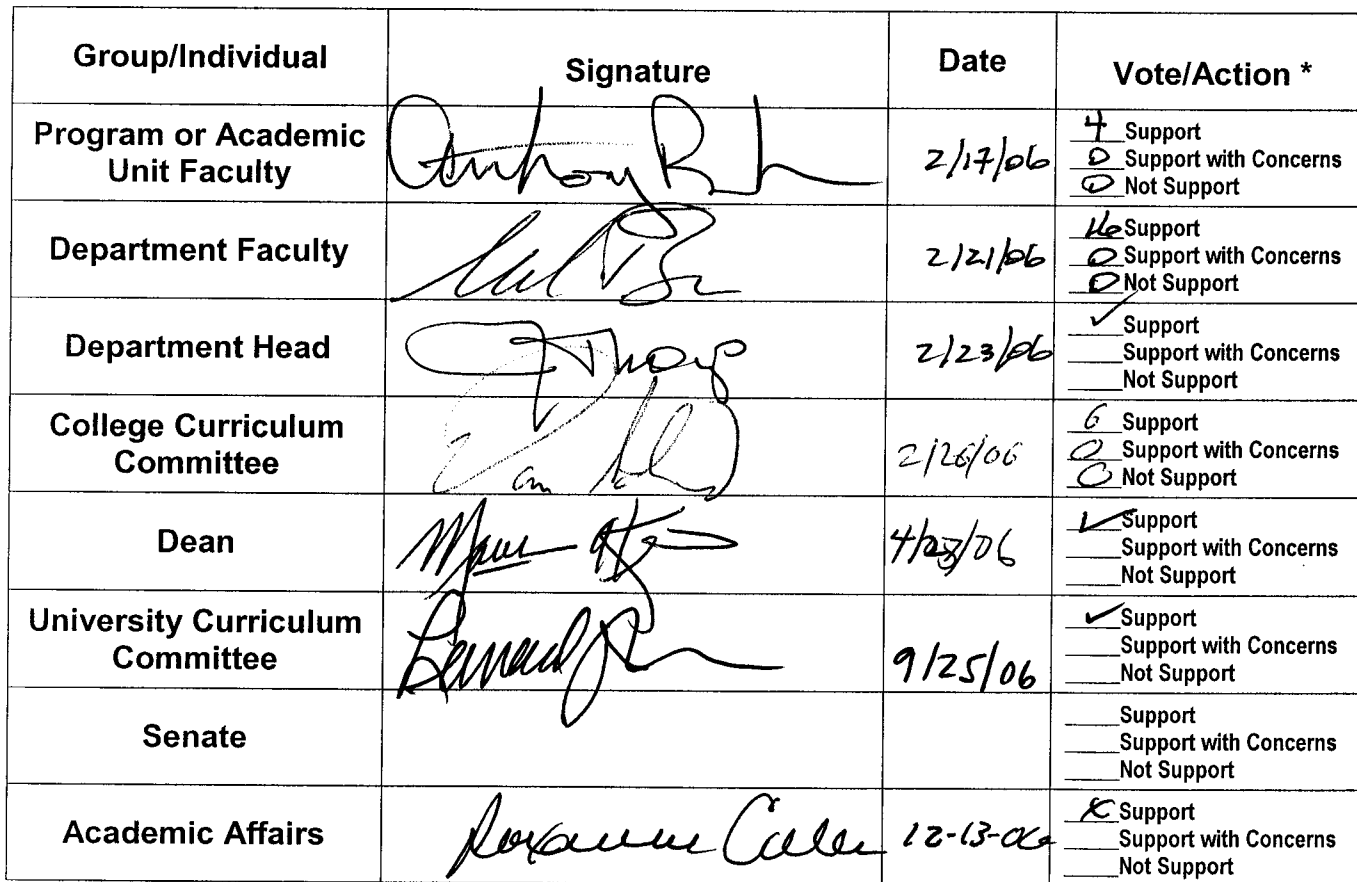 Group/Individual Signature Date Vote/Action *
Program or Academic Unit Faculty Anthony 2/17/06 4 Support
0 Support with Concerns
0 Not Support
Department Faculty 2/21/06 16 Support
0 Support with Concerns
0 Not Support
Department Head 2/23/06 ✓ Support
Support with Concerns
Not Support
College Curriculum Committee 2/26/06 6 Support
0 Support with Concerns
0 Not Support
Dean ✓ Support
Support with Concerns
Not Support
University Curriculum Committee 9/25/06 ✓ Support
Support with Concerns
Not Support
Senate Support
Support with Concerns
Not Support
Academic Affairs Roxanne 12-13-06 X Support
Support with Concerns
Not Support